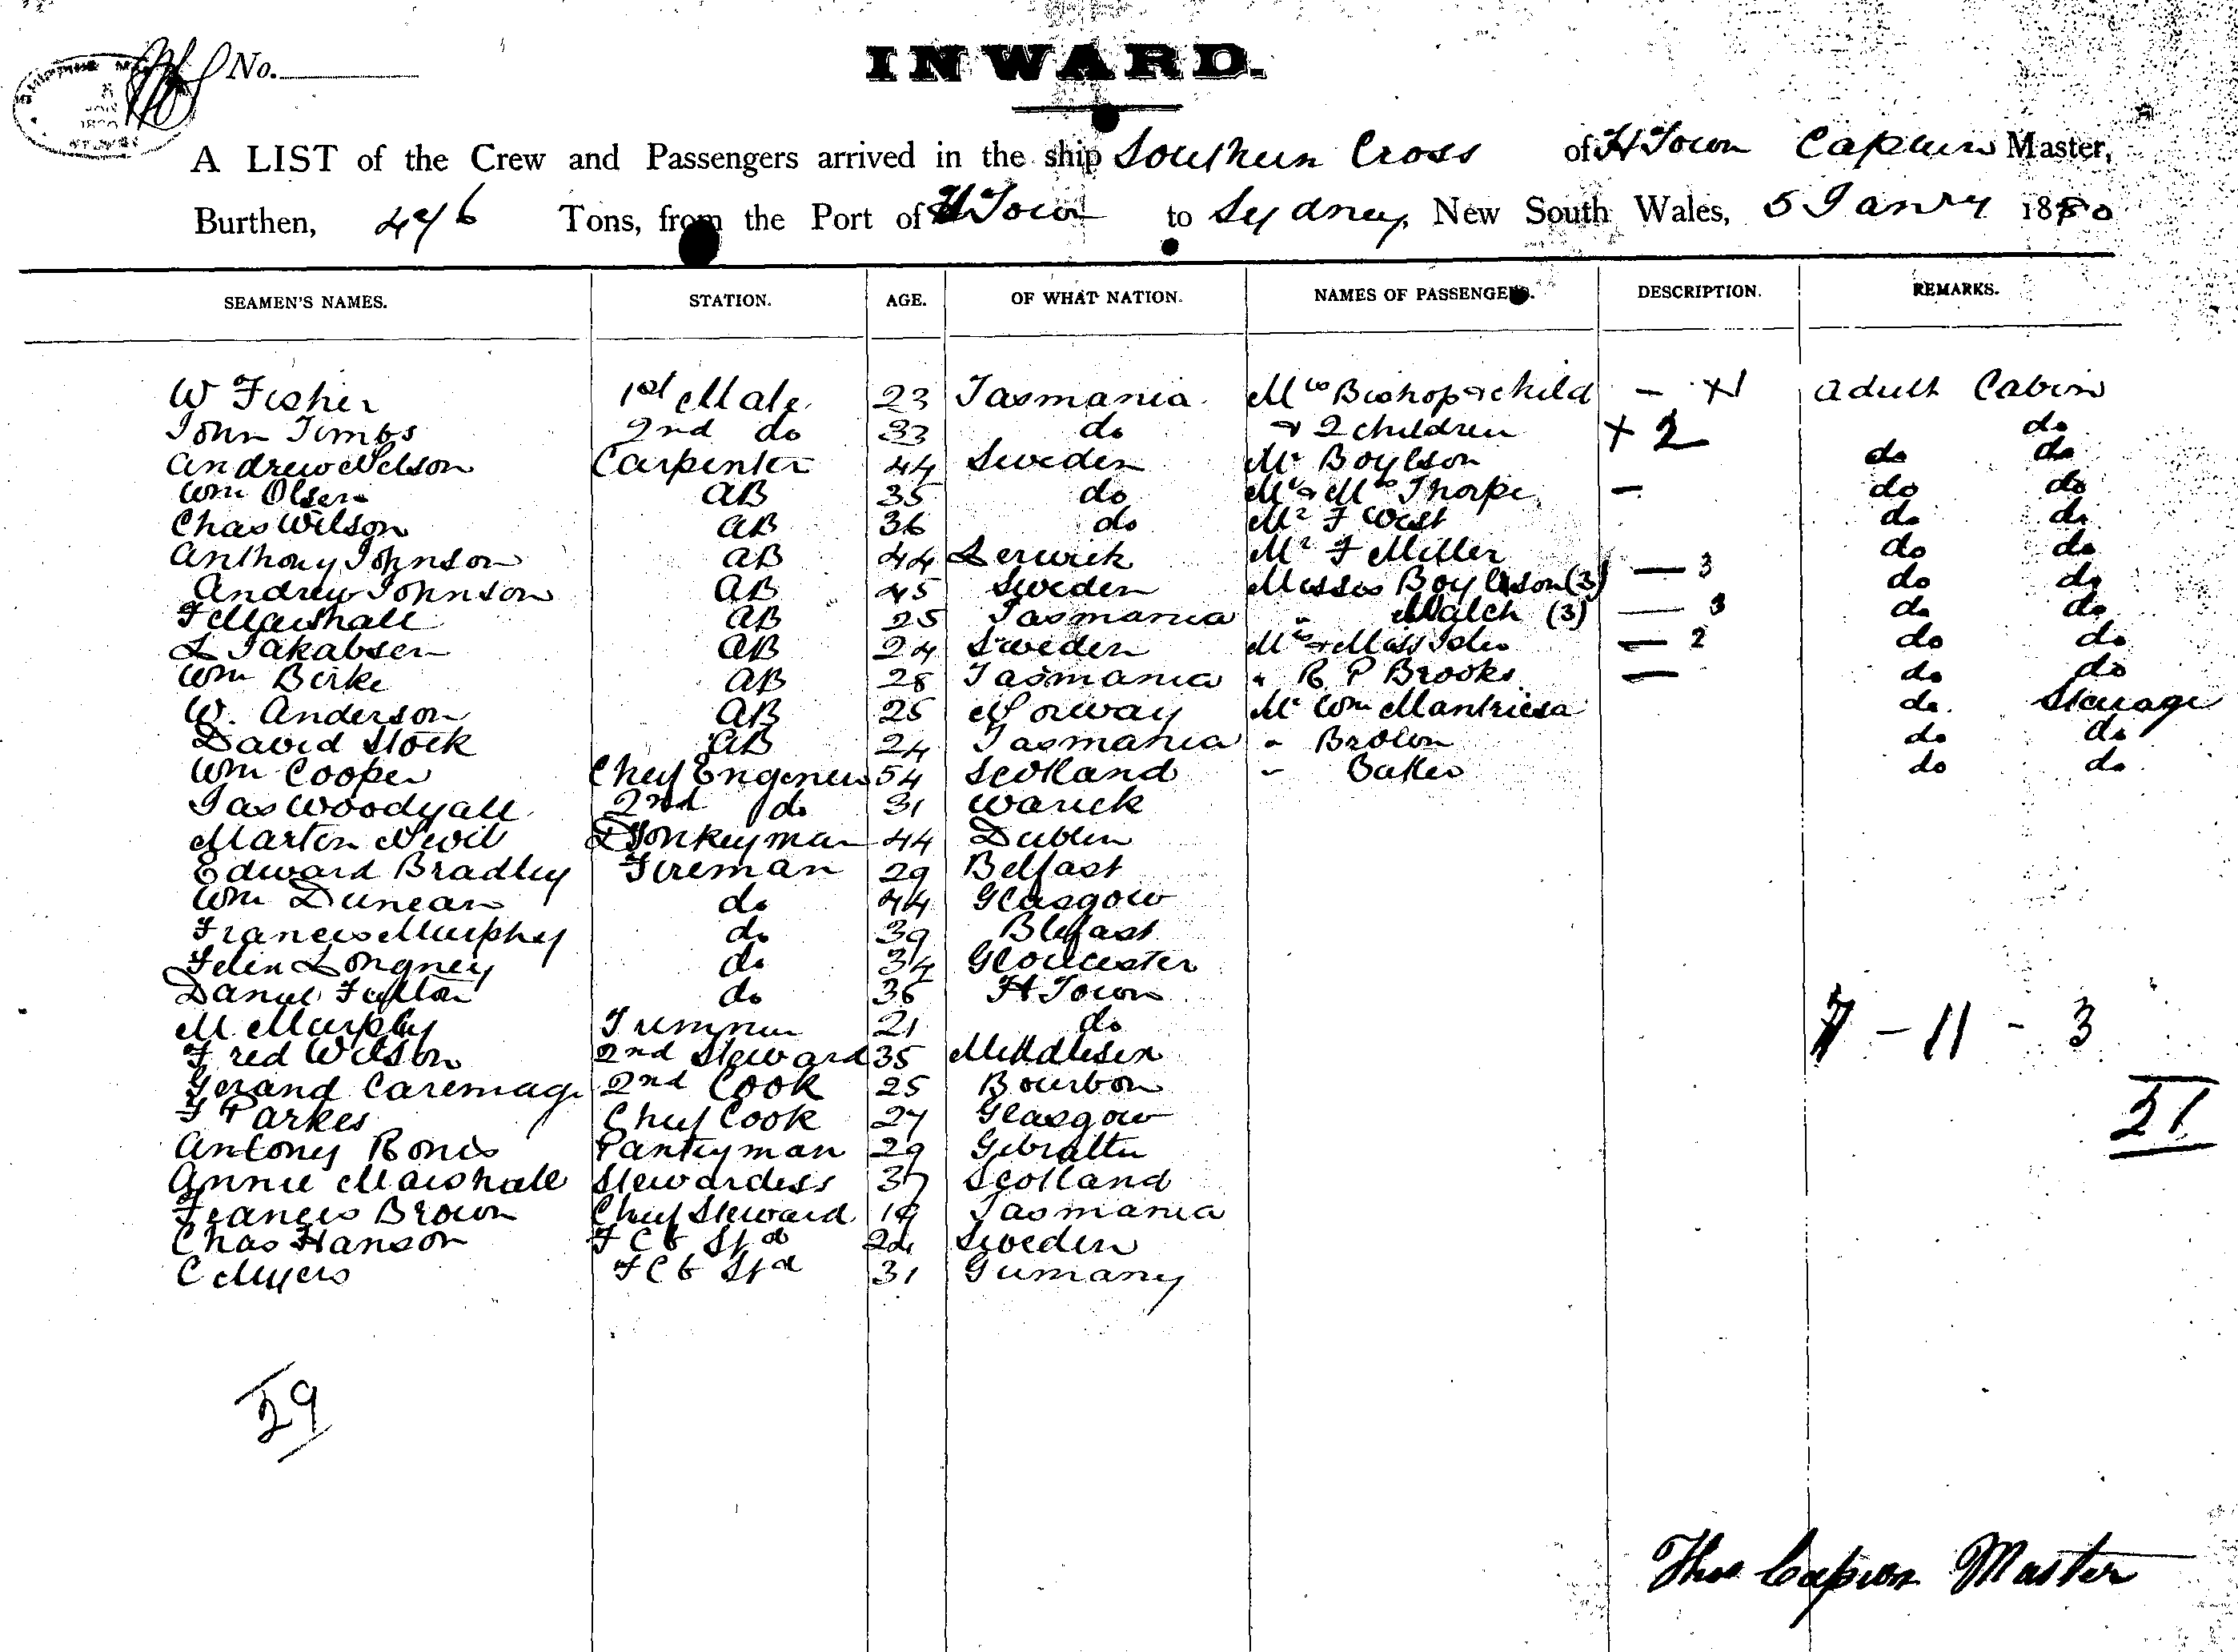 No.
INWARD.
A LIST of the Crew and Passengers arrived in the ship Southern Cross of H Town Capurn Master,
Burthen, 446 Tons, from the Port of H Town to Sydney, New South Wales, 5 Janry 1880
SEAMEN'S NAMES. STATION. AGE. OF WHAT NATION. NAMES OF PASSENGERS. DESCRIPTION. REMARKS.
W Fisher 1st Mate 23 Tasmania Mrs Bishop & child — x1 adult Cabin
John Timbs 2nd do 33 do & 2 children + 2 do
Andrew Nelson Carpenter 44 Sweden Mr Boylson do do
Wm Olsen AB 35 do Mr & Mrs Thorpe — do do
Chas Wilson AB 36 do Mr F West do do
Anthony Johnson AB 44 Lerwick Mr F Miller do do
Andrew Johnson AB 45 Sweden Misses Boylson (3) — 3 do do
F Marshall AB 25 Tasmania " Walch (3) — 3 do do
L Jakabsen AB 24 Sweden Mrs & Miss — 2 do do
Wm Birke AB 28 Tasmania " R P Brooks — do do
W. Anderson AB 25 Norway Mr Wm do Steerage
David Stock AB 24 Tasmania " Brown do do
Wm Cooper Chief Engineer 54 Scotland " Baker do do
Jas Woodyatt 2nd do 31 Warick
Martin Nevil Donkeyman 44 Dublin
Edward Bradley Fireman 29 Belfast
Wm Duncan do 44 Glasgow
Francis Murphy do 39 Blefast
Longney do 34 Gloucester
Daniel Fulton do 36 H Town
M Murphy Trimmer 21 do
Fred Wilson 2nd Steward 35 Middlesex
Gerand 2nd Cook 25 Bourbon
F Parkes Chief Cook 27 Glasgow
Antony Ronis Pantryman 29 Gibralter
Annie Marshall Stewardess 37 Scotland
Francis Brown Chief Steward 19 Tasmania
Chas Hanson F C Std 24 Sweden
C Myers F C Std 31 Germany
7 - 11 - 3
21
29
Thos Capurn Master